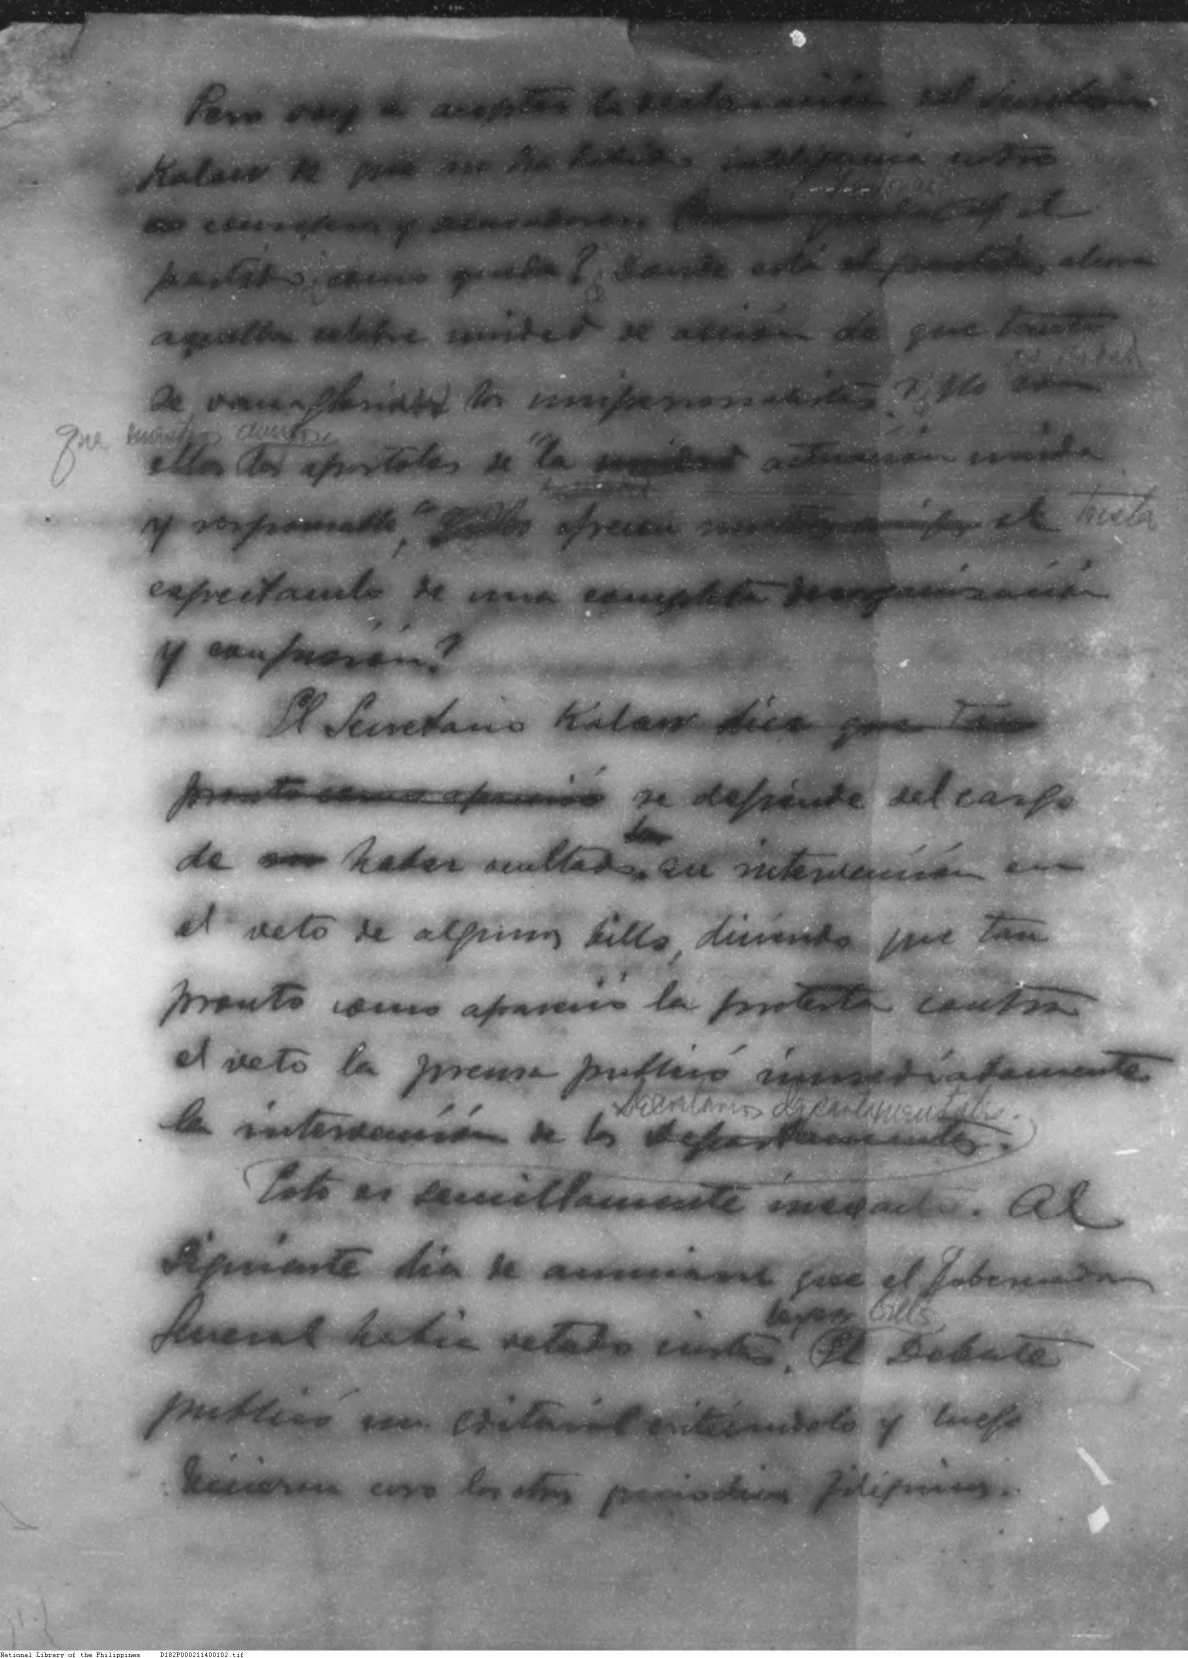 Pero voy a aceptar la declaración del Secretario
Kalaw de que no ha habido inteligencia entre
consejeros y senadores. el
partido, ¿como queda? ¿Donde está ahora
aquella celebre unidad de acción de que tanto
se los unipersonalistas? ¿No son
que nuestros
ellos los apostoles de "la actuación unida
y responsable," ofrecen el triste
espectaculo de una completa desorganización
y confusión?
El Secretario Kalaw
se defiende del cargo
de haber ocultado su intervención en
el veto de algunos bills, diciendo que tan
pronto como apareció la protesta contra
el veto la prensa publicó inmediatamente
Secretarios departamentales.
la intervención de los departamentos.
Esto es sencillamente inexacto. Al
siguiente dia de anunciarse que el Gobernador
bills,
General habia vetado ciertos El Debate
publicó un editorial criticandolo y luego
hicieron coro los otros periodicos filipinos.
National Library of the Philippines D182P000211400102.tif